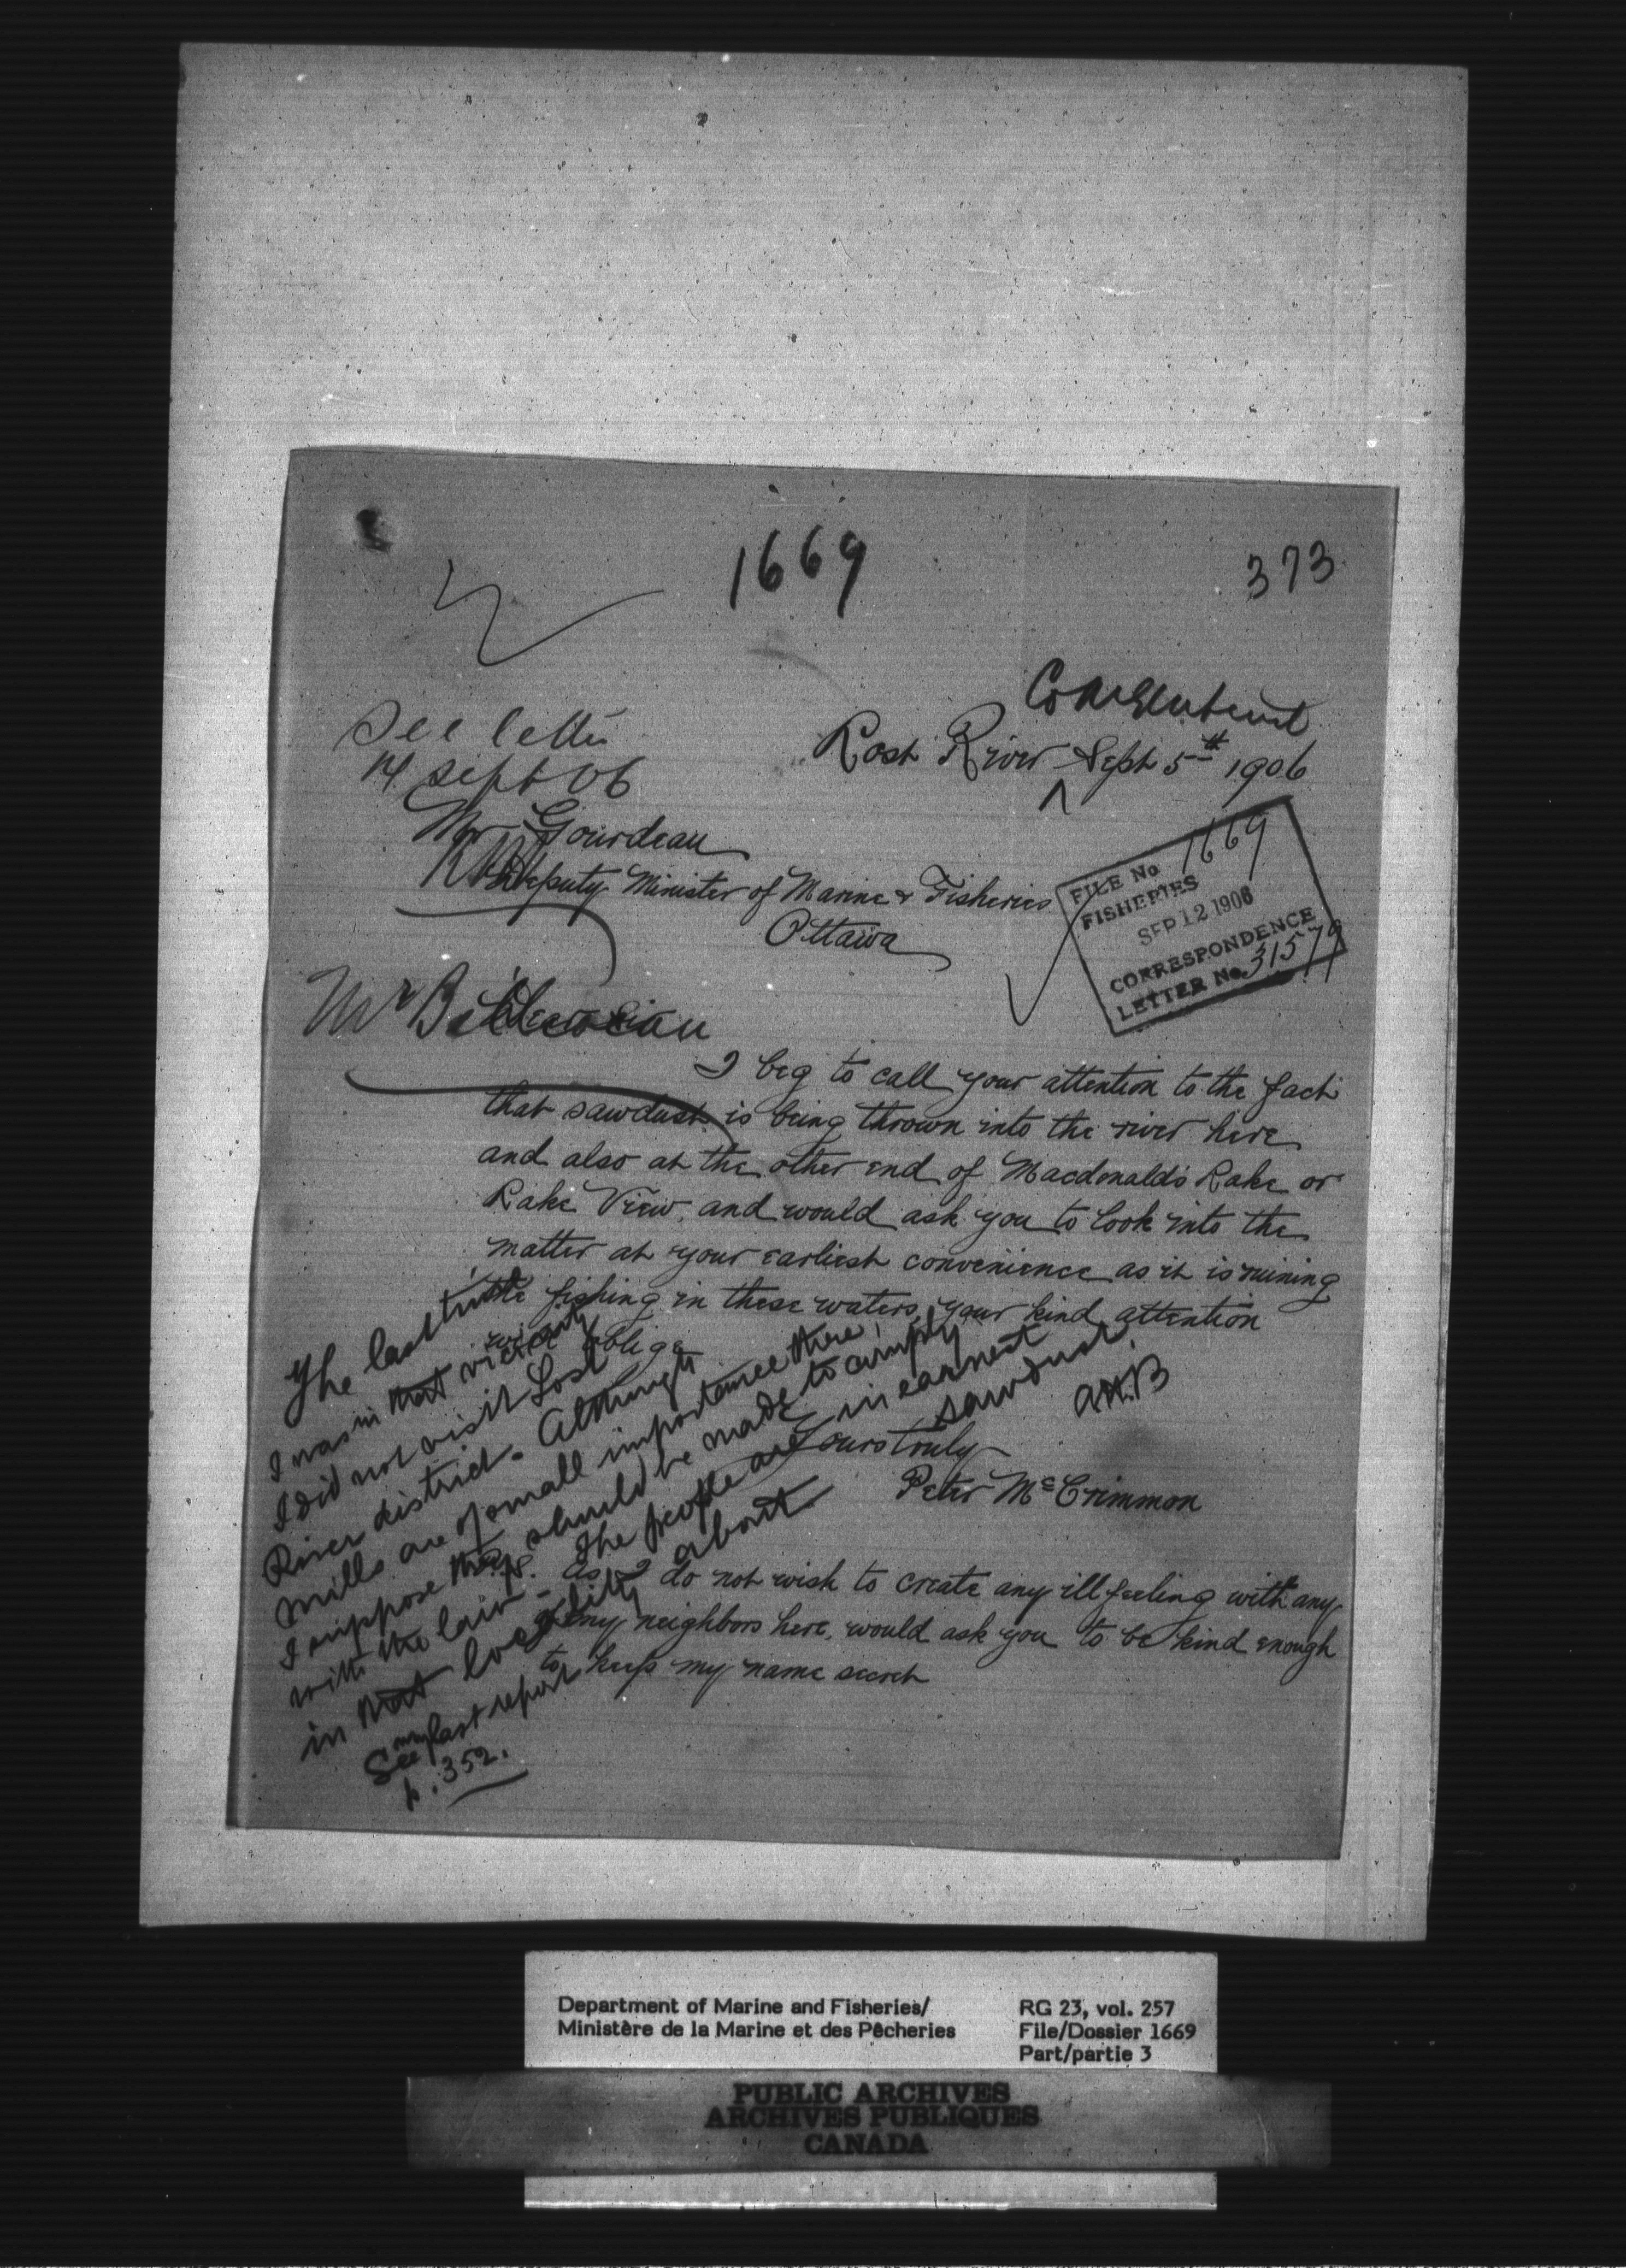 1669
373
See letter
14 Sept 06
Lost River Sept 5th 1906
Mr Gourdeau
Deputy Minister of Marine & Fisheries
Ottawa
FILE No 1669
FISHERIES
SEP 12 1906
CORRESPONDENCE
LETTER No 31579
Mr
I beg to call your attention to the fact
that sawdust is being thrown into the river here
and also at the other end of Macdonald's Lake or
Lake View, and would ask you to look into the
matter at your earliest convenience as it is ruining
the fishing in these waters, your kind attention
will oblige
Yours truly
Peter McCrimmon
As I do not wish to create any ill feeling with any
of my neighbors here, would ask you to be kind enough
to keep my name secret
The last time
I was in that vicinity
I did not visit Lost
River district. Although
mills are of small importance there,
I suppose they should be made to comply
with the law. The people are in earnest
in that locality about sawdust.
See my last report
p. 352.
Department of Marine and Fisheries/
Ministère de la Marine et des Pêcheries
RG 23, vol. 257
File/Dossier 1669
Part/partie 3
PUBLIC ARCHIVES
ARCHIVES PUBLIQUES
CANADA